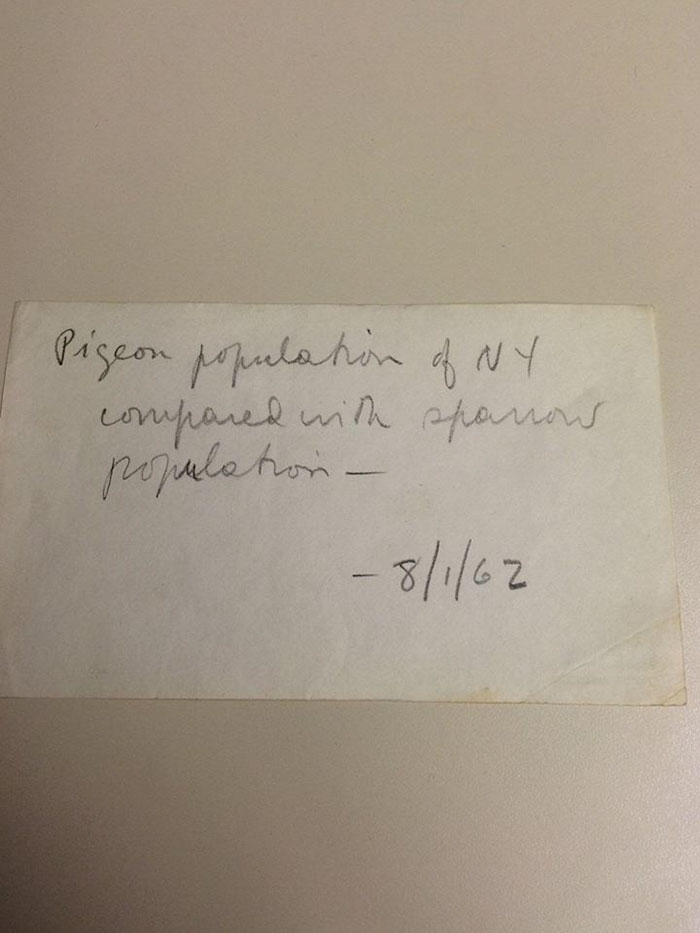 Pigeon population of NY
compared with sparrow
population —
— 8/1/62